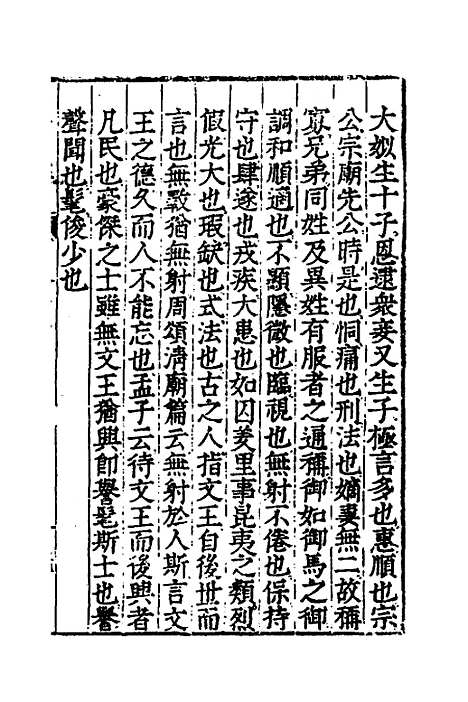 大姒生十子恩逮衆妾又生子極言多也惠順也宗
公宗廟先公時是也恫痛也刑法也嫡妻無二故稱
寡兄弟同姓及異姓有服者之通稱御如御馬之御
調和順適也不顯隱微也臨視也無射不倦也保持
守也肆遂也戎疾大患也如囚羑里事昆夷之類烈
假光大也瑕缺也式法也古之人指文王自後世而
言也無斁猶無射周頌清廟篇云無射於人斯言文
王之德久而人不能忘也孟子云待文王而後興者
凡民也豪傑之士雖無文王猶興即譽髦斯士也譽
聲聞也髦俊少也